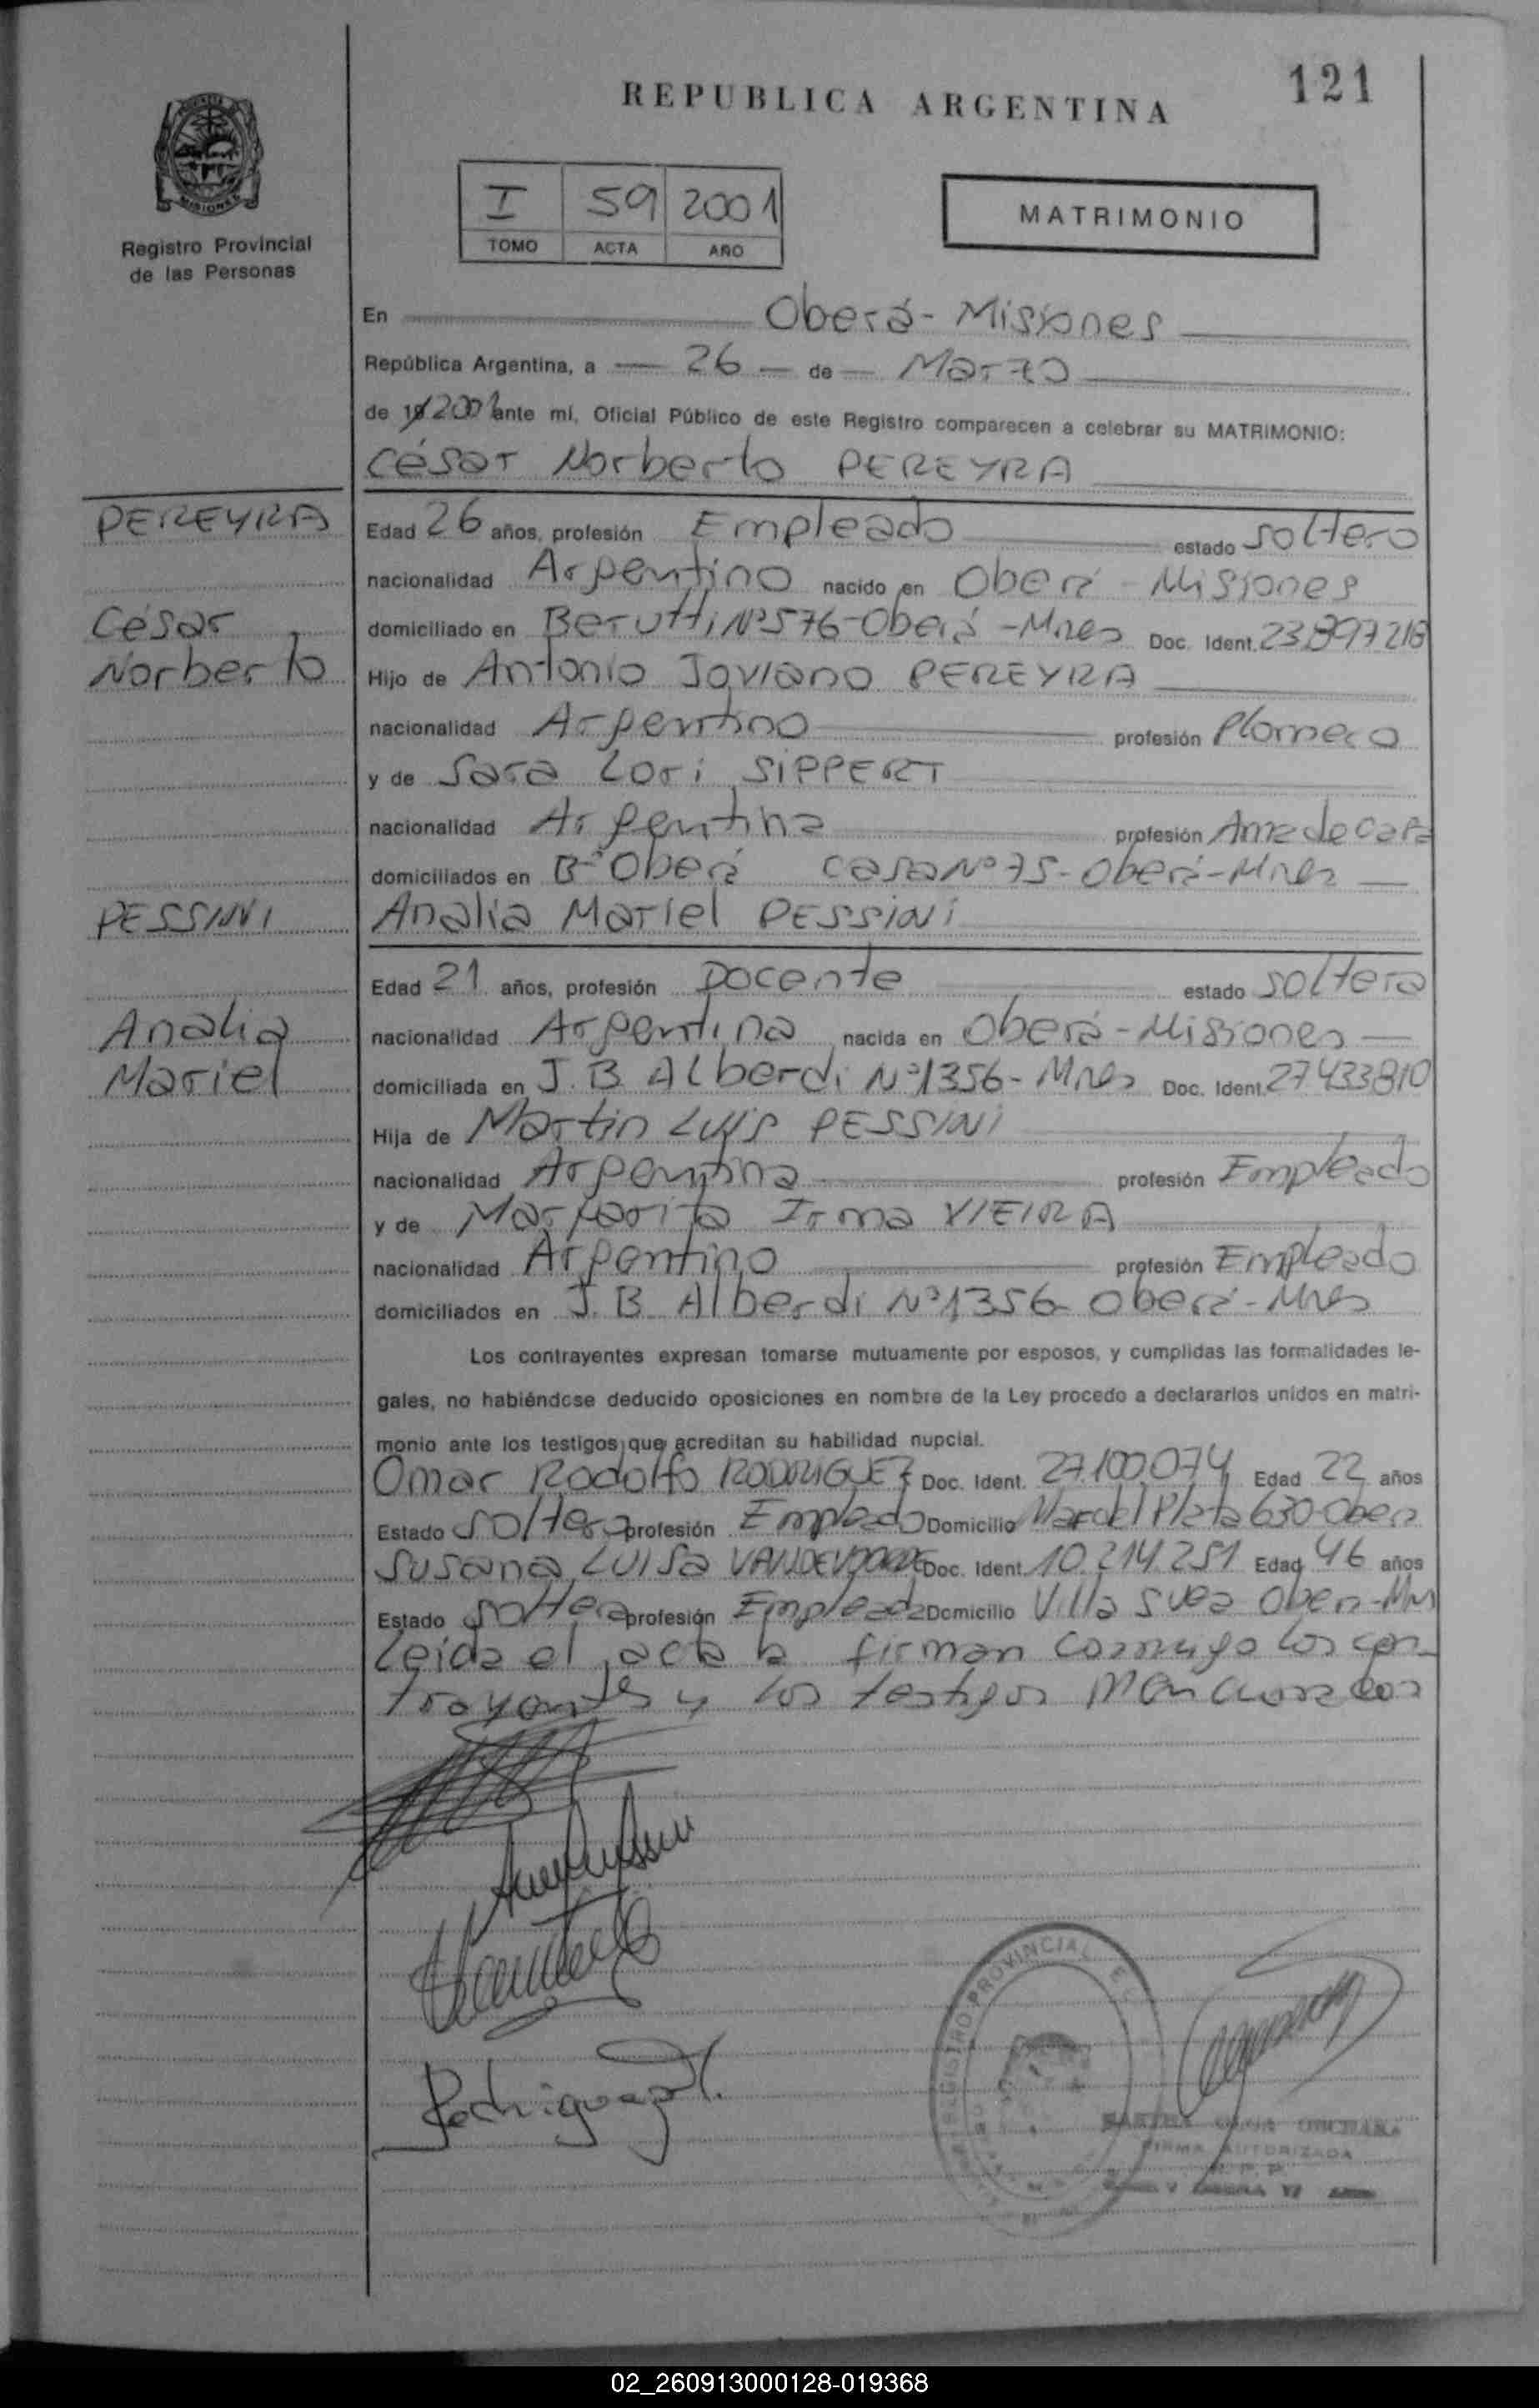 121
REPUBLICA ARGENTINA
MISIONES
Registro Provincial
de las Personas
I 59 2001
TOMO ACTA AÑO
MATRIMONIO
En Oberá - Misiones
República Argentina, a 26 de Marzo
de 19 2001 ante mí, Oficial Público de este Registro comparecen a celebrar su MATRIMONIO:
César Norberto PEREYRA
PEREYRA
Edad 26 años, profesión Empleado estado soltero
nacionalidad Argentino nacido en Oberá - Misiones
César
domiciliado en Berutti Nº 576 - Oberá - Mnes Doc. Ident. 23.897.218
Norberto
Hijo de Antonio Joviano PEREYRA
nacionalidad Argentino profesión Plomero
y de Sara Lori SIPPERT
nacionalidad Argentina profesión Ama de casa
domiciliados en Bº Oberá Casa Nº 75 - Oberá - Mnes
PESSINI
Analia Mariel PESSINI
Edad 21 años, profesión Docente estado soltera
Analia
nacionalidad Argentina nacida en Oberá - Misiones
Mariel
domiciliada en J. B. Alberdi Nº 1356 - Mnes Doc. Ident. 27433810
Hija de Martin Luis PESSINI
nacionalidad Argentina profesión Empleado
y de Margarita Irma VIEIRA
nacionalidad Argentino profesión Empleado
domiciliados en J. B. Alberdi Nº 1356 - Oberá - Mnes
Los contrayentes expresan tomarse mutuamente por esposos, y cumplidas las formalidades le-
gales, no habiéndose deducido oposiciones en nombre de la Ley procedo a declararlos unidos en matri-
monio ante los testigos que acreditan su habilidad nupcial.
Omar Rodolfo RODRIGUEZ Doc. Ident. 27.100.074 Edad 22 años
Estado soltero profesión Empleado Domicilio Mar del Plata 630 - Oberá
Susana LUISA Doc. Ident. 10.214.251 Edad 46 años
Estado soltera profesión Empleada Domicilio Villa Svea Oberá - Mns
Leida el acta la firman conmigo los con-
trayentes y los testigos mencionados
Rodriguez
REGISTRO PROVINCIAL
FIRMA AUTORIZADA
02_260913000128-019368